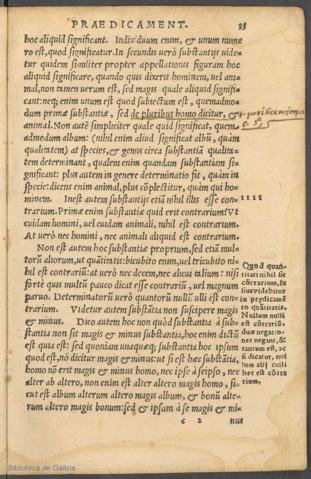 PRAEDICAMENT. 35
hoc aliquid significant. Individuum enim, & unum nume
ro est, quod significatur. In secundis verò substantijs vide=
tur quidem similiter propter appellationis figuram hoc
aliquid significare, quando quis dixerit hominem, vel ani=
mal, non tamen verum est, sed magis quale aliquid signifi=
cant: neq; enim unum est quod subiectum est, quemadmo=
dum primæ substantiæ, sed de pluribus homo dicitur, &
animal. Non autẽ simpliciter quale quid significat, quem=
admodum album: (nihil enim aliud significat albũ, quàm
qualitatem) at species, & genus circa substantiã qualita=
tem determinant, qualem enim quandam substantiam si=
gnificant: plus autem in genere determinatio fit, quàm in
specie: dicens enim animal, plus cõplectitur, quàm qui ho=
minem. Inest autem substantijs etiã nihil illis esse con=
trarium. Primæ enim substantiæ quid erit contrarium? Ut
cuidam homini, vel cuidam animali, nihil est contrarium.
At verò nec homini, nec animali aliquid est contrarium.
Non est autem hoc substantiæ proprium, sed etiã mul=
torũ aliorum, ut quãtitatis: bicubito enim, vel tricubito ni=
hil est contrariũ: at verò nec decem, nec alicui taliũ: nisi
fortè quis multis pauca dicat esse contrariũ, vel magnum
parvo. Determinatorũ verò quantorũ nullũ ulli est con=
trarium. Videtur autem substãtia non suscipere magis
& minus. Dico autem hoc non quòd substantia à sub=
stantia non sit magis & minus substantia, hoc enim dictũ
est quia est: sed quoniam unaquæq; substantia hoc ipsum
quod est, nõ dicitur magis & minus: ut si est hæc substãtia,
homo nõ erit magis & minus homo, nec ipse à seipso, nec
alter ab altero, non enim est alter altero magis homo, si=
cut est album alterum altero magis album, & bonũ alte=
rum altero magis bonum: sed & ipsum à se magis & mi=
c 2 nus
1111
Quòd quan
titati nihil sit
cõtrarium, fu
siùs videbitur
in prædicamẽ
to quãtitatis.
Nullum nulli
est cõtrariũ
duæ negatio=
nes negant, &
tantum est, ac
si dicatur, nul
lum alij cuili
bet est cõtra
rium,
Biblioteca de Galicia